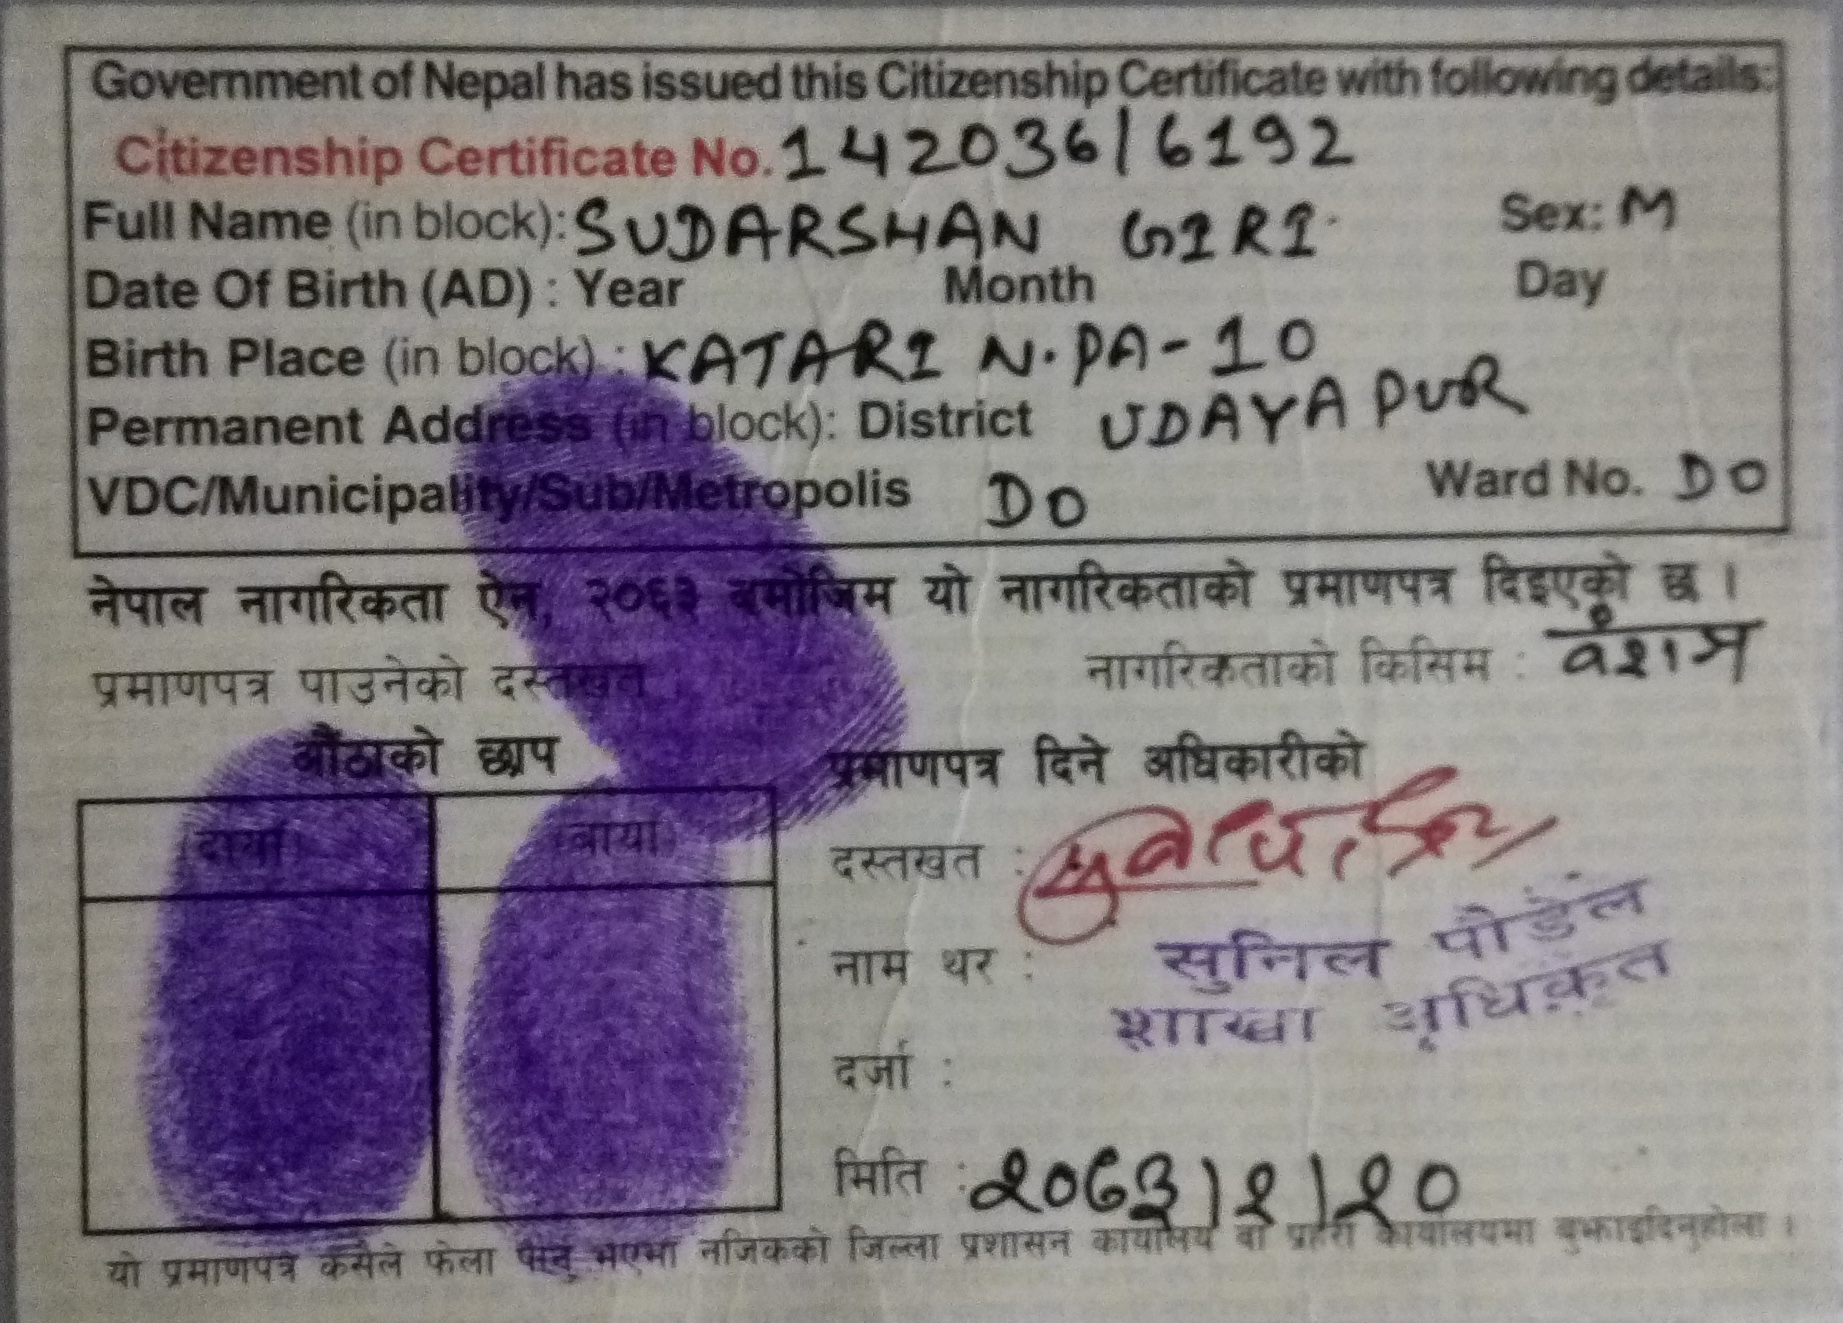 Government of Nepal has issued this Citizenship Certificate with following details:
Citizenship Certificate No. 142036/6192
Full Name (in block): SUDARSHAN GIRI Sex: M
Date Of Birth (AD) : Year Month Day
Birth Place (in block) : KATARI N.PA-10
Permanent Address (in block): District UDAYAPUR
VDC/Municipality/Sub/Metropolis DO Ward No. DO
नेपाल नागरिकता ऐन, २०६३ बमोजिम यो नागरिकताको प्रमाणपत्र दिइएको छ ।
प्रमाणपत्र पाउनेको दस्तखत नागरिकताको किसिम : वंशज
औंठाको छाप प्रमाणपत्र दिने अधिकारीको
दायाँ बायाँ
दस्तखत :
नाम थर : सुनिल पौडेल
शाखा अधिकृत
दर्जा :
मिति :
यो प्रमाणपत्र कसैले फेला पारेमा नजिकको जिल्ला प्रशासन कार्यालय वा प्रहरी कार्यालयमा बुझाइदिनुहोला ।